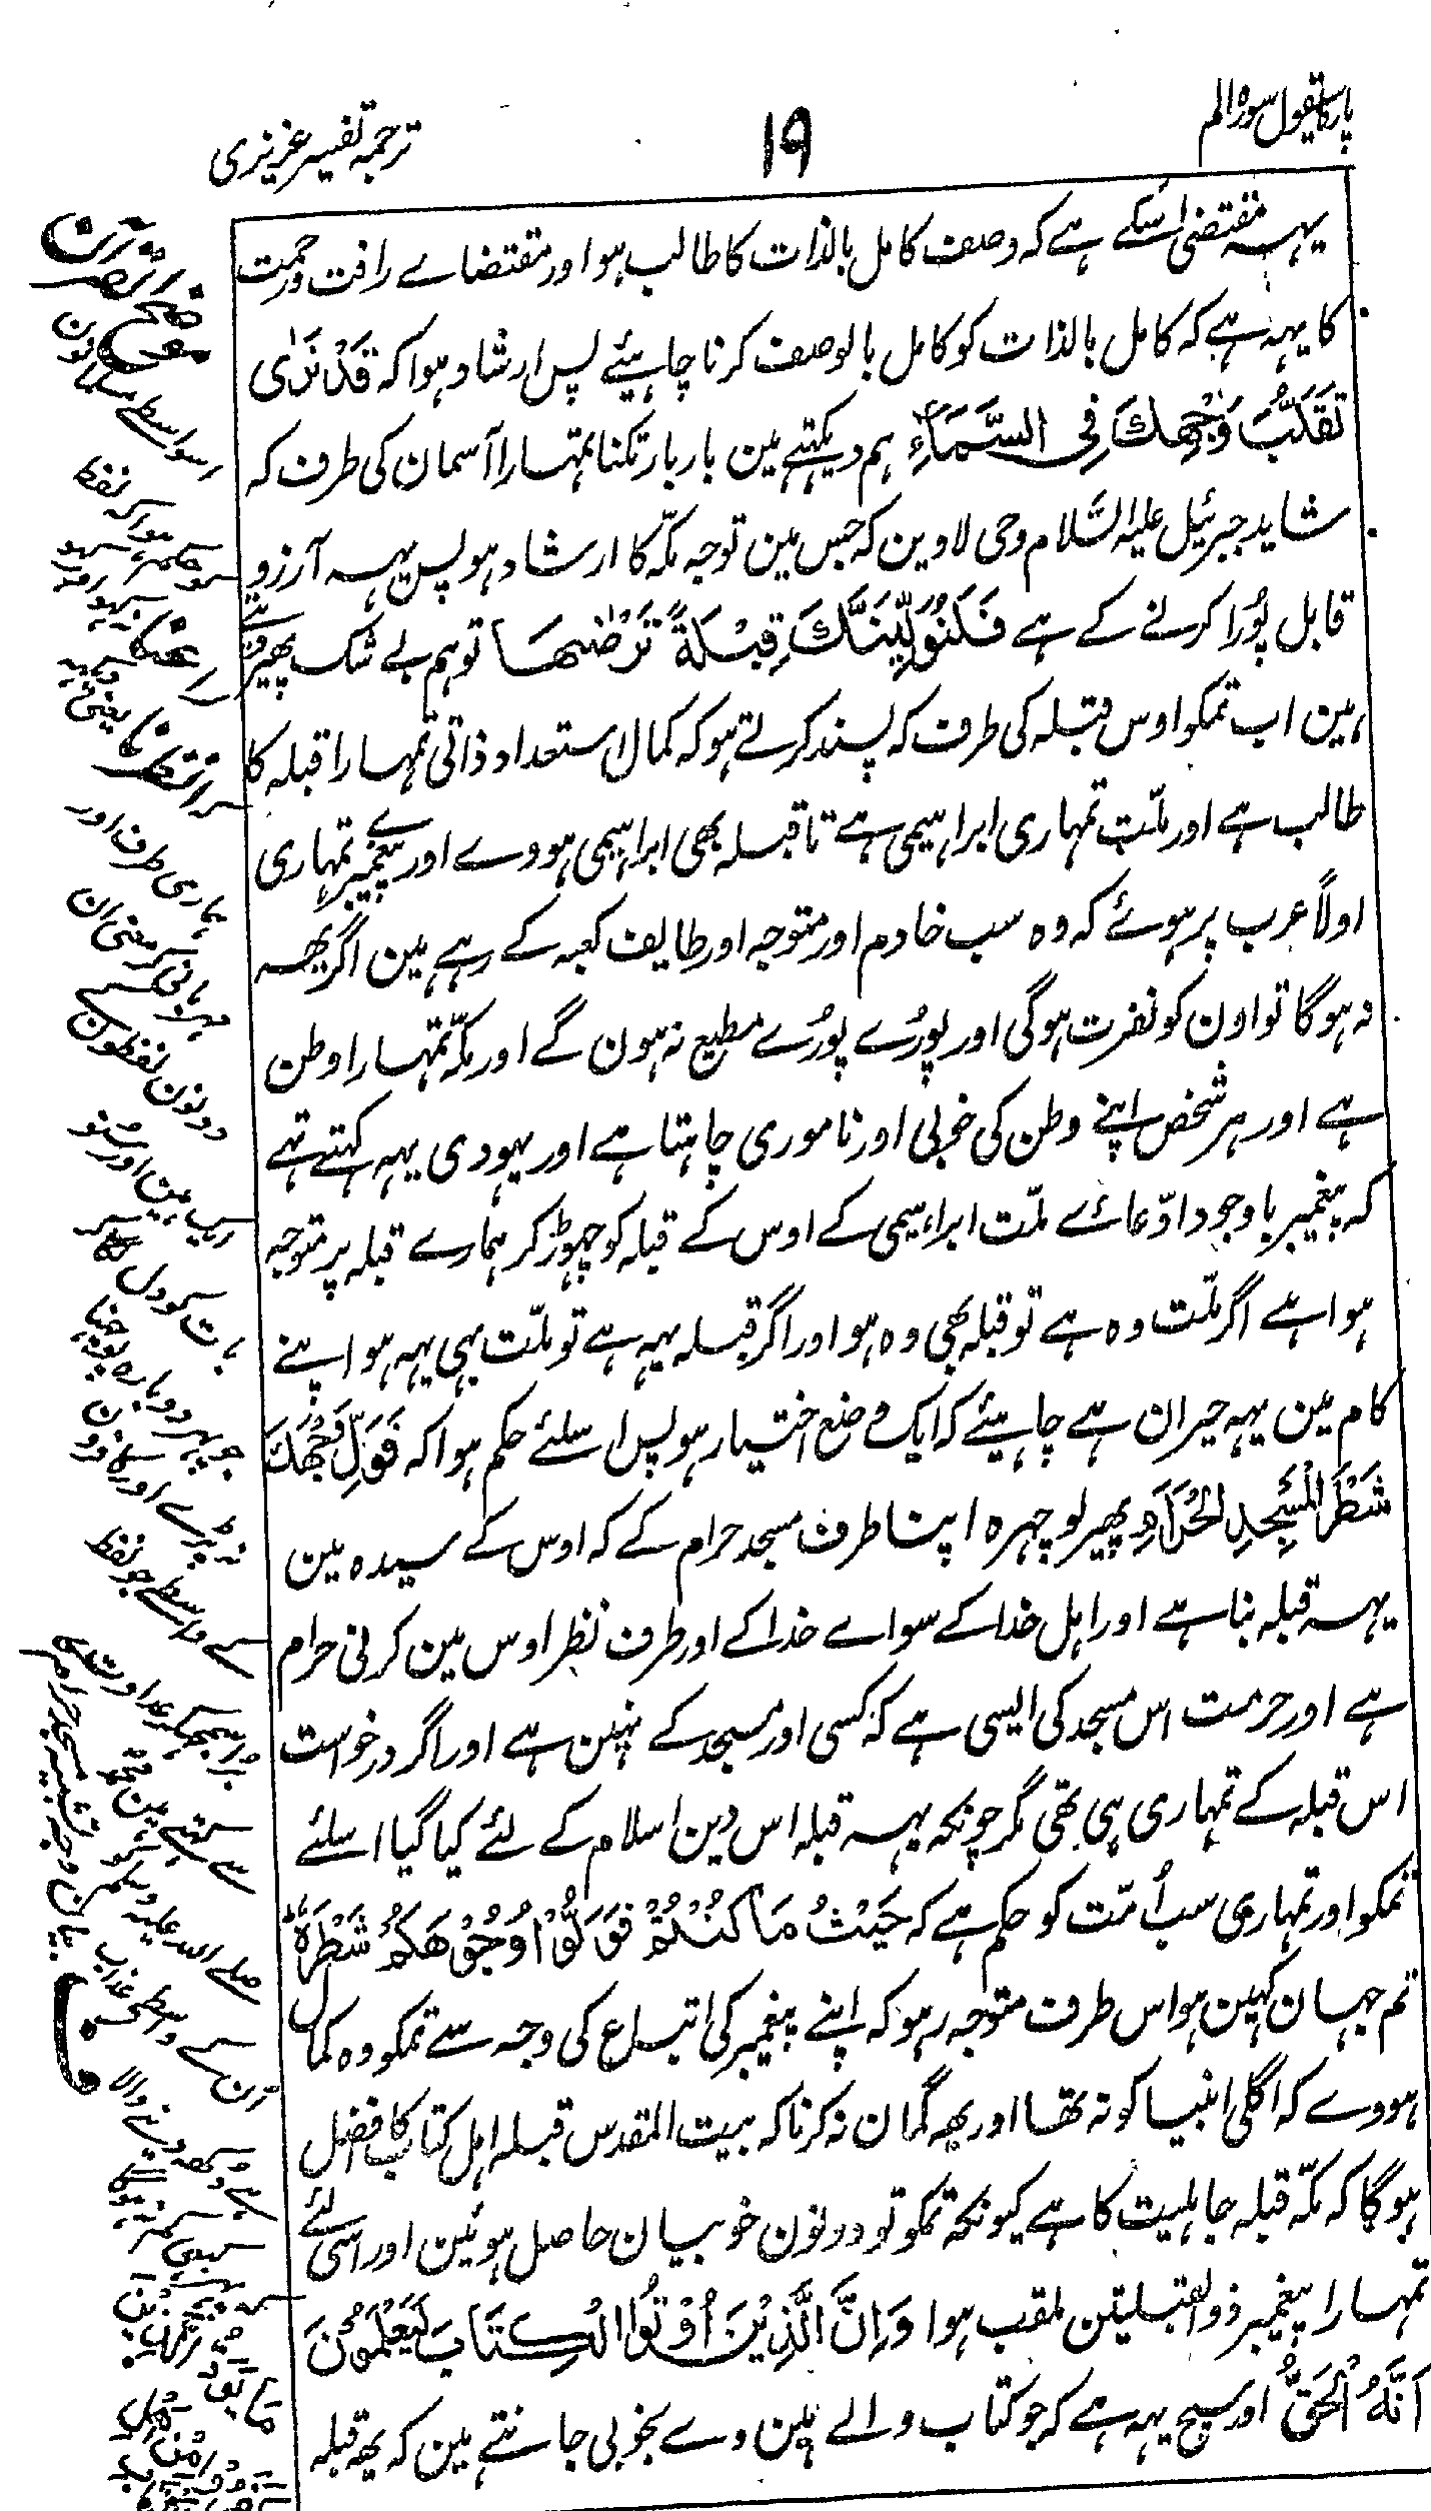 پارہ سیقول سورہ الم
19
ترجمہ تفسیر عزیزی
یہہ مقتضی اسکے ہے کہ وصف کامل بالذات کا طالب ہو اور مقتضاے رافت ورحمت
کا یہہ ہے کہ کامل بالذات کو کامل بالوصف کرنا چاہیئے پس ارشاد ہوا کہ قَدْ نَرٰی
تَقَلُّبَ وَجْهِكَ فِی السَّمَآءِ ہم دیکہتے ہین بار بار تکنا تمہارا آسمان کی طرف کہ
شاید جبرئیل علیہ السَّلام وحی لاوین کہ جس مین توجہ مکّہ کا ارشاد ہو پس یہہ آرزو
قابل پُورا کرنے کے ہے فَلَنُوَلِّيَنَّكَ قِبْلَةً تَرْضٰىهَا تو ہم بے شک پھیر دیتے
ہین اب تمکو اوس قبلہ کی طرف کہ پسند کرتے ہو کہ کمال استعداد ذاتی تمہارا قبلہ کا
طالب ہے اور ملّت تمہاری ابراہیمی ہے تا قبلہ بھی ابراہیمی ہووے اور پیغمبرے تمہاری
اولاً عرب پر ہوئے کہ وہ سب خادم اور متوجہ اور طایف کعبہ کے رہے ہین اگر یھہ
نہ ہوگا تو اون کو نفرت ہوگی اور پورُے پورُے مطیع نہ ہون گے اور مکّہ تمہارا وطن
ہے اور ہر شخص اپنے وطن کی خوبی اور ناموری چاہتا ہے اور یہودی یہہ کہتے تہے
کہ پیغمبر باوجود ادّعائے ملّت ابراہیمی کے اوس کے قبلہ کو چہوڑ کر ہمارے قبلہ پر متوجہ
ہوا ہے اگر ملّت وہ ہے تو قبلہ بھی وہ ہو اور اگر قبلہ یہہ ہے تو ملّت بہی یہہ ہو اپنے
کام مین یہہ حیران ہے چاہیئے کہ ایک وضع اختیار ہو پس اسلئے حکم ہوا کہ فَوَلِّ وَجْهَكَ
شَطْرَ الْمَسْجِدِ الْحَرَامِ پھیر لو چہرہ اپنا طرف مسجد حرام کے کہ اوس کے سیدہ مین
یہہ قبلہ بنا ہے اور اہل خدا کے سواے خدا کے اور طرف نظر اوس مین کرنی حرام
ہے اور حرمت اس مسجد کی ایسی ہے کہ کسی اور مسجد کے نہین ہے اور اگر درخواست
اس قبلہ کے تمہاری ہی تھی مگر چونکہ یہہ قبلہ اس دین اسلام کے لئے کیا گیا اسلئے
تمکو اور تمہاری سب اُمّت کو حکم ہے کہ حَيْثُ مَا كُنْتُمْ فَوَلُّوْا وُجُوْهَكُمْ شَطْرَهٗ
تم جہان کہین ہو اس طرف متوجہ رہو کہ اپنے پیغمبر کی اتباع کی وجہ سے تمکو وہ کمال
ہووے کہ اگلی انبیا کو نہ تھا اور یھہ گمان نہ کرنا کہ بیت المقدس قبلہ اہل کتاب کا افضل
ہوگا کہ مکّہ قبلہ جاہلیت کا ہے کیونکہ تمکو تو دونون خوبیان حاصل ہوئین اور اسی لئے
تمہارا پیغمبر ذو القبلتین ملقب ہوا وَاِنَّ الَّذِيْنَ اُوْتُوا الْكِتَابَ لَيَعْلَمُوْنَ
اَنَّهُ الْحَقُّ اور سچ یہہ ہے کہ جو کتاب والے ہین وے بخوبی جانتے ہین کہ یھہ قبلہ
ہوا کہ لفظ
رَاعِنَا
انْظُرْنَا یعنی
ہماری طرف اور
مہربانی کر معنی ان
دونون لفظون کے
ایک ہین اور سنو
بات کو دل لگا کر
جو پہر دوبارہ پوچہنا
نہ پڑے اور کافرون
کے واسطے جو لفظ
سے کہتے ہین محمد
صلے اللہ علیہ وسلم کو
ف
بیان وجہ تشبیہ مسجد حرام